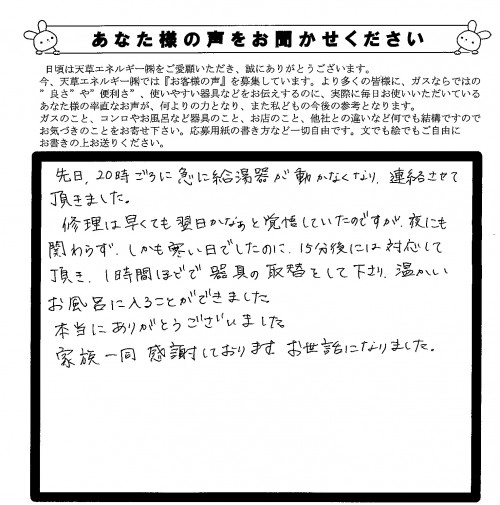 あなた様の声をお聞かせください
日頃は天草エネルギー㈱をご愛顧いただき、誠にありがとうございます。
今、天草エネルギー㈱では『お客様の声』を募集しています。より多くの皆様に、ガスならではの
"良さ"や"便利さ"、使いやすい器具などをお伝えするのに、実際に毎日お使いいただいている
あなた様の率直なお声が、何よりの力となり、また私どもの今後の参考となります。
ガスのこと、コンロやお風呂など器具のこと、お店のこと、他社との違いなど何でも結構ですので
お気づきのことをお寄せ下さい。応募用紙の書き方など一切自由です。文でも絵でもご自由に
お書きの上お送りください。
先日、20時ごろに急に給湯器が動かなくなり、連絡させて
頂きました。
修理は早くても翌日かなぁと覚悟していたのですが、夜にも
関わらず、しかも寒い日でしたのに、15分後には対応して
頂き、1時間ほどで器具の取替をして下さり、温かい
お風呂に入ることができました。
本当にありがとうございました。
家族一同 感謝しております。お世話になりました。